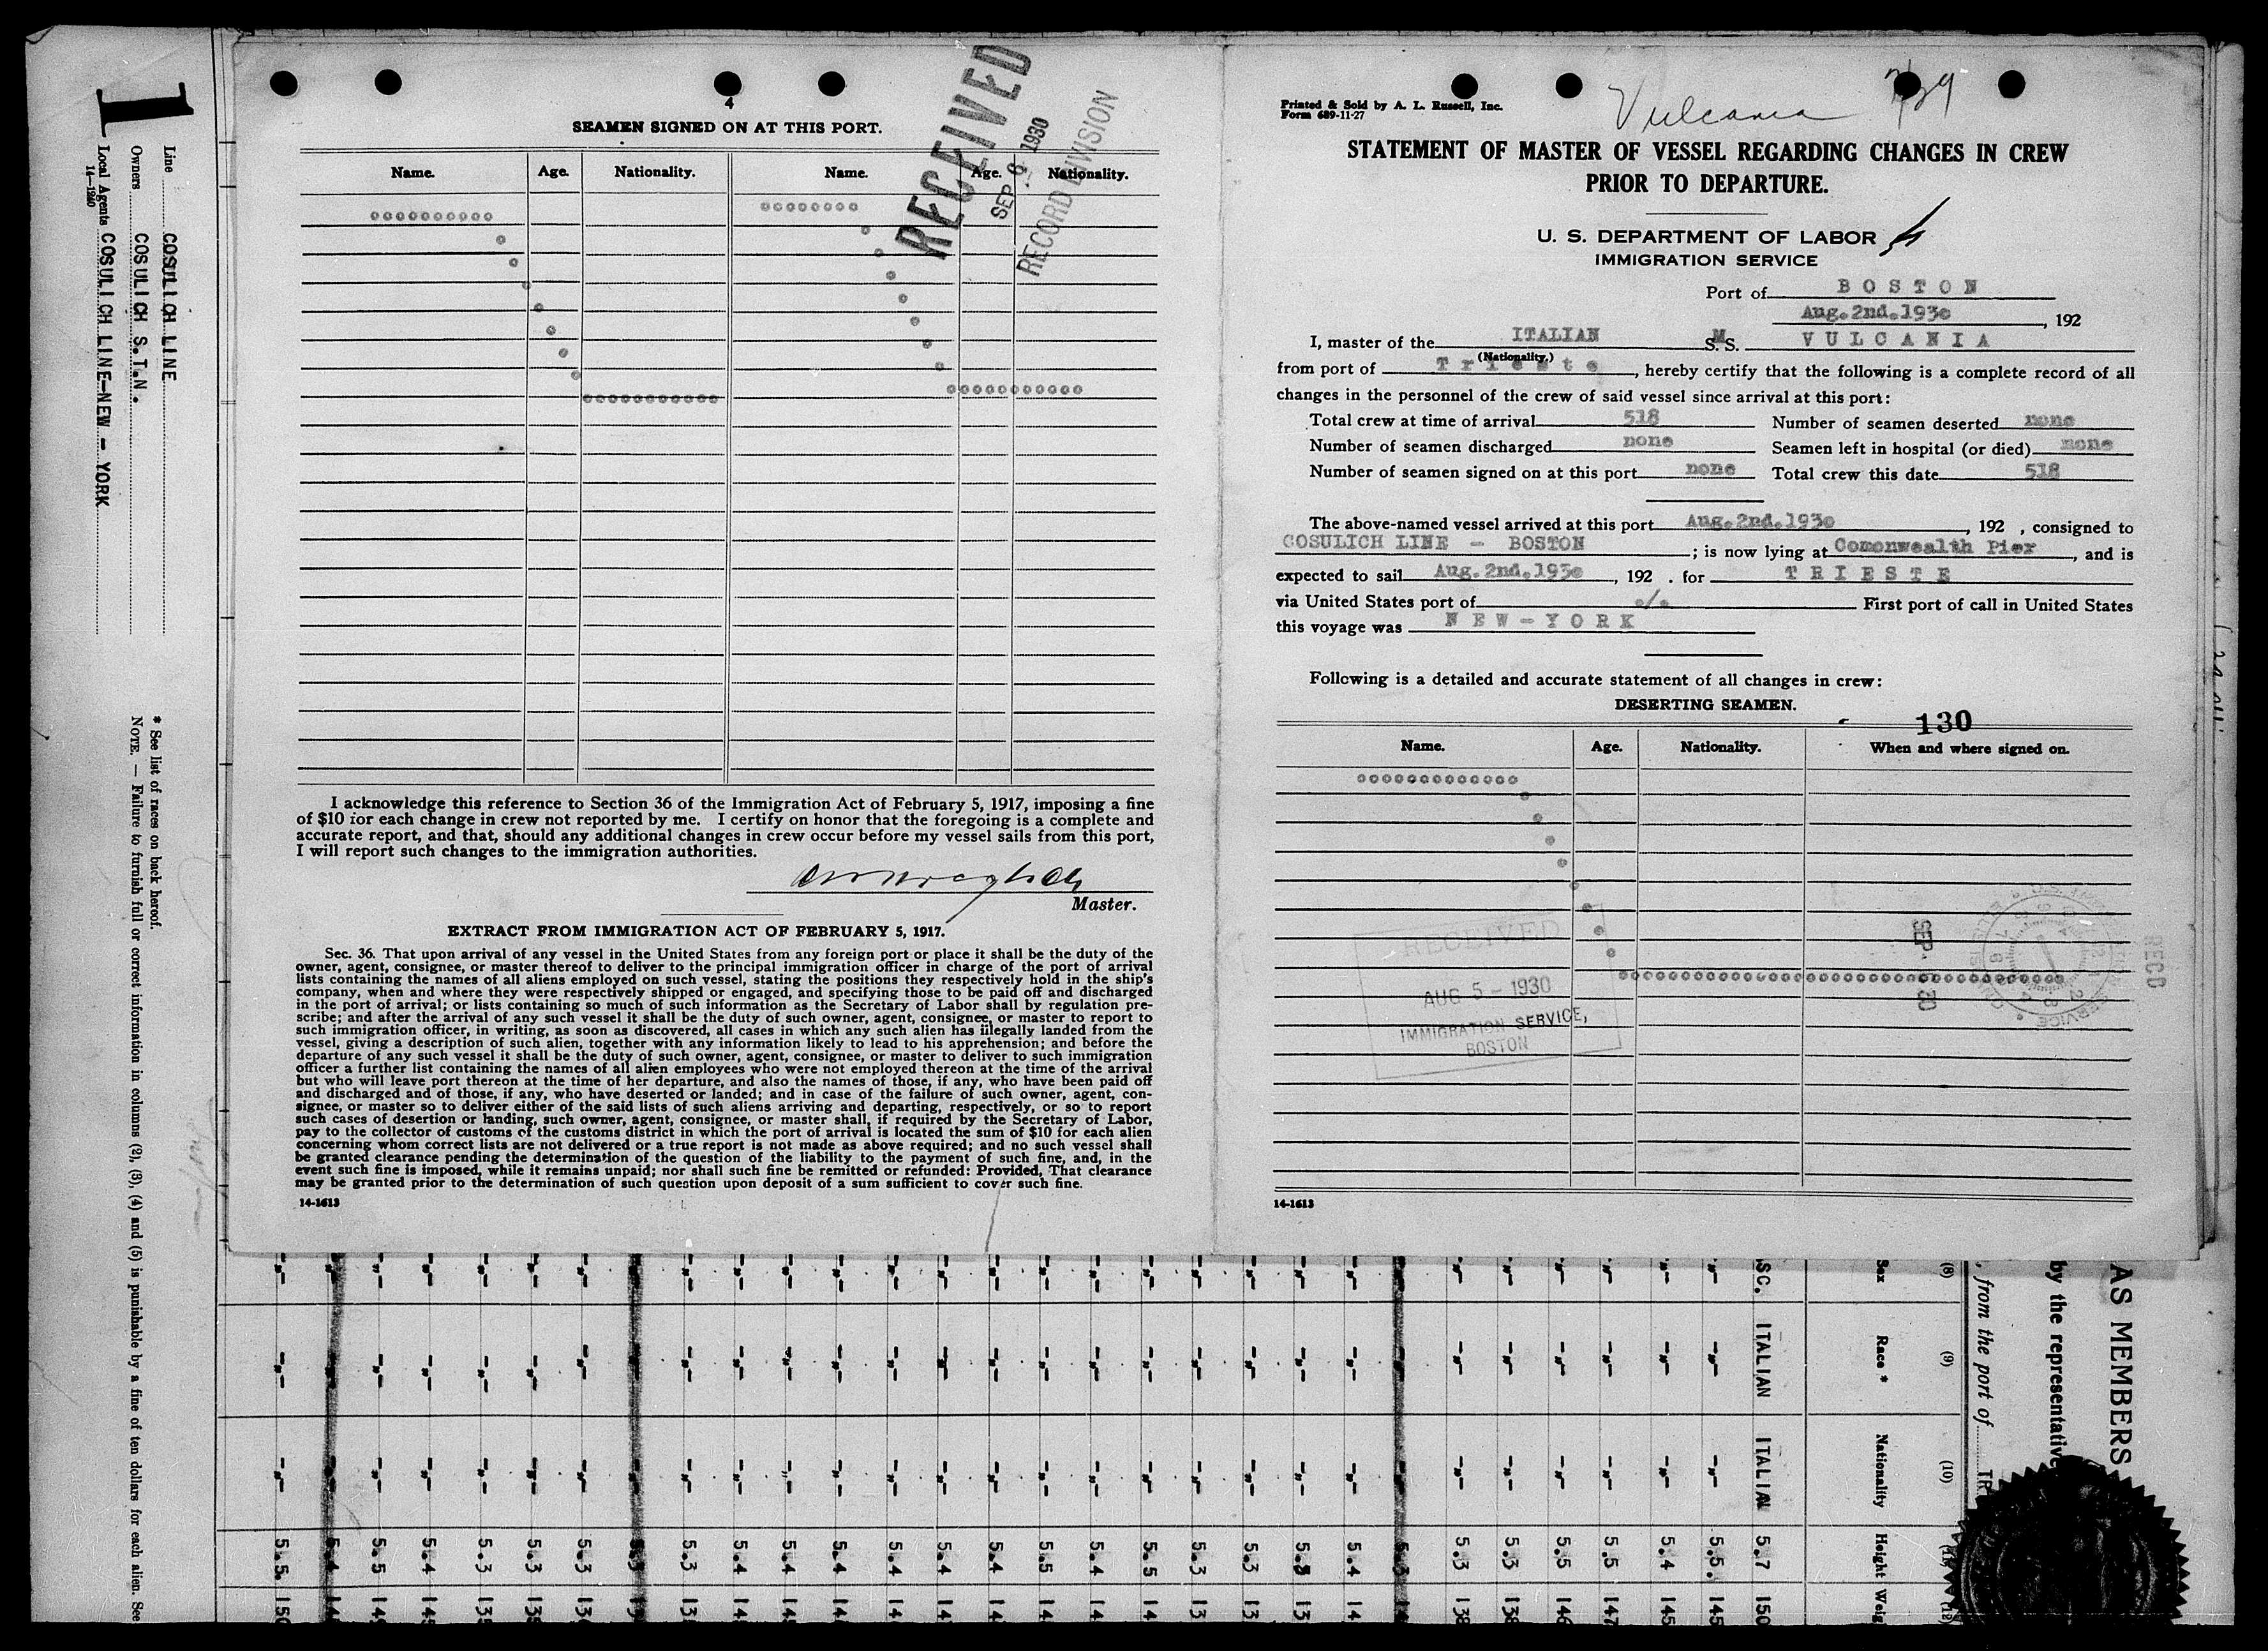 1
Line COSULICH LINE
Owners COSULICH S.T.N.
Local Agents COSULICH LINE—NEW - YORK
14—1240
* See list of races on back hereof.
NOTE. — Failure to furnish full or correct information in columns (2), (3), (4) and (5) is punishable by a fine of ten dollars for each alien. See
4
SEAMEN SIGNED ON AT THIS PORT.
RECEIVED
SEP 6 1930
RECORD DIVISION
Name. Age. Nationality. Name. Age. Nationality.
I acknowledge this reference to Section 36 of the Immigration Act of February 5, 1917, imposing a fine
of $10 for each change in crew not reported by me. I certify on honor that the foregoing is a complete and
accurate report, and that, should any additional changes in crew occur before my vessel sails from this port,
I will report such changes to the immigration authorities.
Master.
EXTRACT FROM IMMIGRATION ACT OF FEBRUARY 5, 1917.
Sec. 36. That upon arrival of any vessel in the United States from any foreign port or place it shall be the duty of the
owner, agent, consignee, or master thereof to deliver to the principal immigration officer in charge of the port of arrival
lists containing the names of all aliens employed on such vessel, stating the positions they respectively hold in the ship's
company, when and where they were respectively shipped or engaged, and specifying those to be paid off and discharged
in the port of arrival; or lists containing so much of such information as the Secretary of Labor shall by regulation pre-
scribe; and after the arrival of any such vessel it shall be the duty of such owner, agent, consignee, or master to report to
such immigration officer, in writing, as soon as discovered, all cases in which any such alien has illegally landed from the
vessel, giving a description of such alien, together with any information likely to lead to his apprehension; and before the
departure of any such vessel it shall be the duty of such owner, agent, consignee, or master to deliver to such immigration
officer a further list containing the names of all alien employees who were not employed thereon at the time of the arrival
but who will leave port thereon at the time of her departure, and also the names of those, if any, who have been paid off
and discharged and of those, if any, who have deserted or landed; and in case of the failure of such owner, agent, con-
signee, or master so to deliver either of the said lists of such aliens arriving and departing, respectively, or so to report
such cases of desertion or landing, such owner, agent, consignee, or master shall, if required by the Secretary of Labor,
pay to the collector of customs of the customs district in which the port of arrival is located the sum of $10 for each alien
concerning whom correct lists are not delivered or a true report is not made as above required; and no such vessel shall
be granted clearance pending the determination of the question of the liability to the payment of such fine, and, in the
event such fine is imposed, while it remains unpaid; nor shall such fine be remitted or refunded: Provided, That clearance
may be granted prior to the determination of such question upon deposit of a sum sufficient to cover such fine.
14-1613
Printed & Sold by A. L. Russell, Inc.
Form 689-11-27
Vulcania
STATEMENT OF MASTER OF VESSEL REGARDING CHANGES IN CREW
PRIOR TO DEPARTURE.
U. S. DEPARTMENT OF LABOR
IMMIGRATION SERVICE
Port of BOSTON
Aug.2nd.1930, 192
I, master of the ITALIAN M S.S. VULCANIA
(Nationality.)
from port of Trieste, hereby certify that the following is a complete record of all
changes in the personnel of the crew of said vessel since arrival at this port:
Total crew at time of arrival 518 Number of seamen deserted none
Number of seamen discharged none Seamen left in hospital (or died) none
Number of seamen signed on at this port none Total crew this date 518
The above-named vessel arrived at this port Aug.2nd.1930, 192 , consigned to
COSULICH LINE - BOSTON; is now lying at Comonwealth Pier, and is
expected to sail Aug.2nd.1930, 192 . for TRIESTE
via United States port of o/o First port of call in United States
this voyage was NEW-YORK
Following is a detailed and accurate statement of all changes in crew:
DESERTING SEAMEN.
130
Name. Age. Nationality. When and where signed on.
RECEIVED
AUG 5 - 1930
IMMIGRATION SERVICE,
BOSTON
REC'D
14-1613
AS MEMBERS
by the representative
, from the port of TR
(8) (9) (10) (11) (12)
Sex Race * Nationality Height Weig
SC. ITALIAN ITALIAN 5.7 150
5.5. 145
5.4 145
5.5 147
5.5 146
5.3 138
5.3 138
5.4 14
5.3 13
5.3 13
5.3 13
5.5 14
5.4 14
5.5 14
5.4 14
5.4 14
5.4 14
5.4 14
5.4 14
5.4 14
5.3 13
5.3 13
5.3 135
5.3 135
5.4 145
5.5 14
5.4 14
5.5. 150